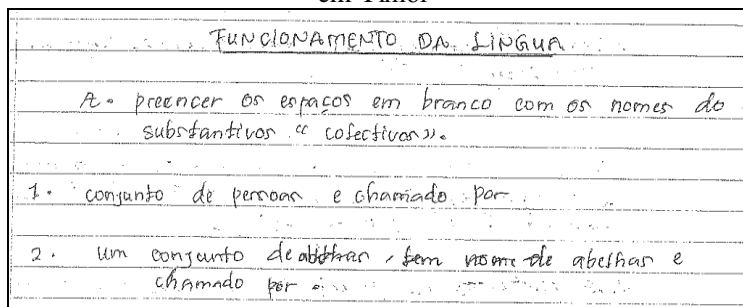 em Timor
FUNCIONAMENTO DA LINGUA
A. preencer os espaços em branco com os nomes do
substantivos " colectivos ».
1. conjunto de pessoas e chamado por
2. um conjunto de , tem nome de abelhas e
chamado por :